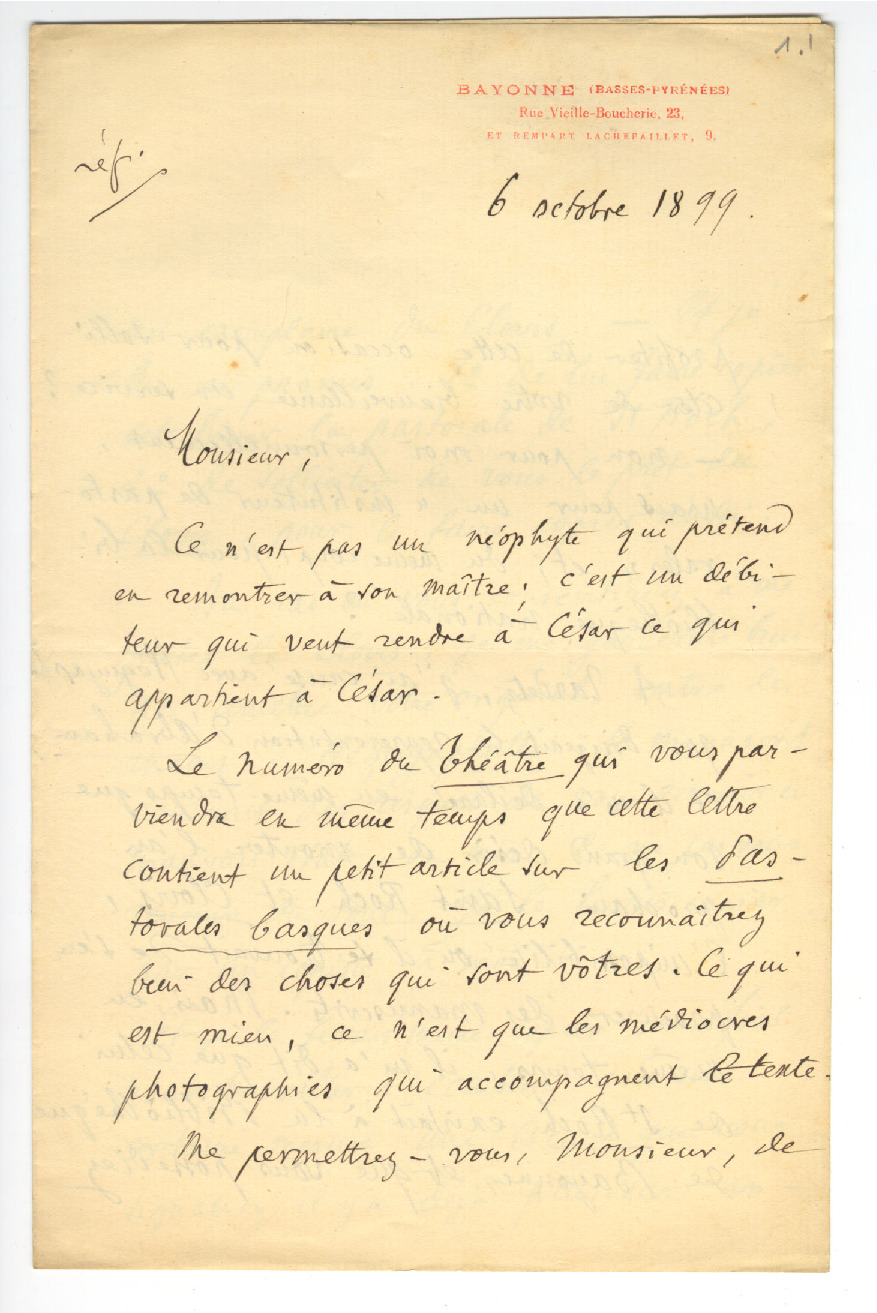 1.
BAYONNE (BASSES-PYRÉNÉES)
Rue Vieille-Boucherie, 23,
ET REMPART LACHEPAILLET, 9.
rép.
6 octobre 1899.
Monsieur,
Ce n'est pas un néophyte qui prétend
en remontrer à son maître; c'est un débi-
teur qui veut rendre à César ce qui
appartient à César.
Le numéro du Théâtre qui vous par-
viendra en même temps que cette lettre
contient un petit article sur les Pas-
torales basques où vous reconnaîtrez
bien des choses qui sont vôtres. Ce qui
est mien, ce n'est que les médiocres
photographies qui accompagnent le texte.
Me permettrez-vous, Monsieur, de